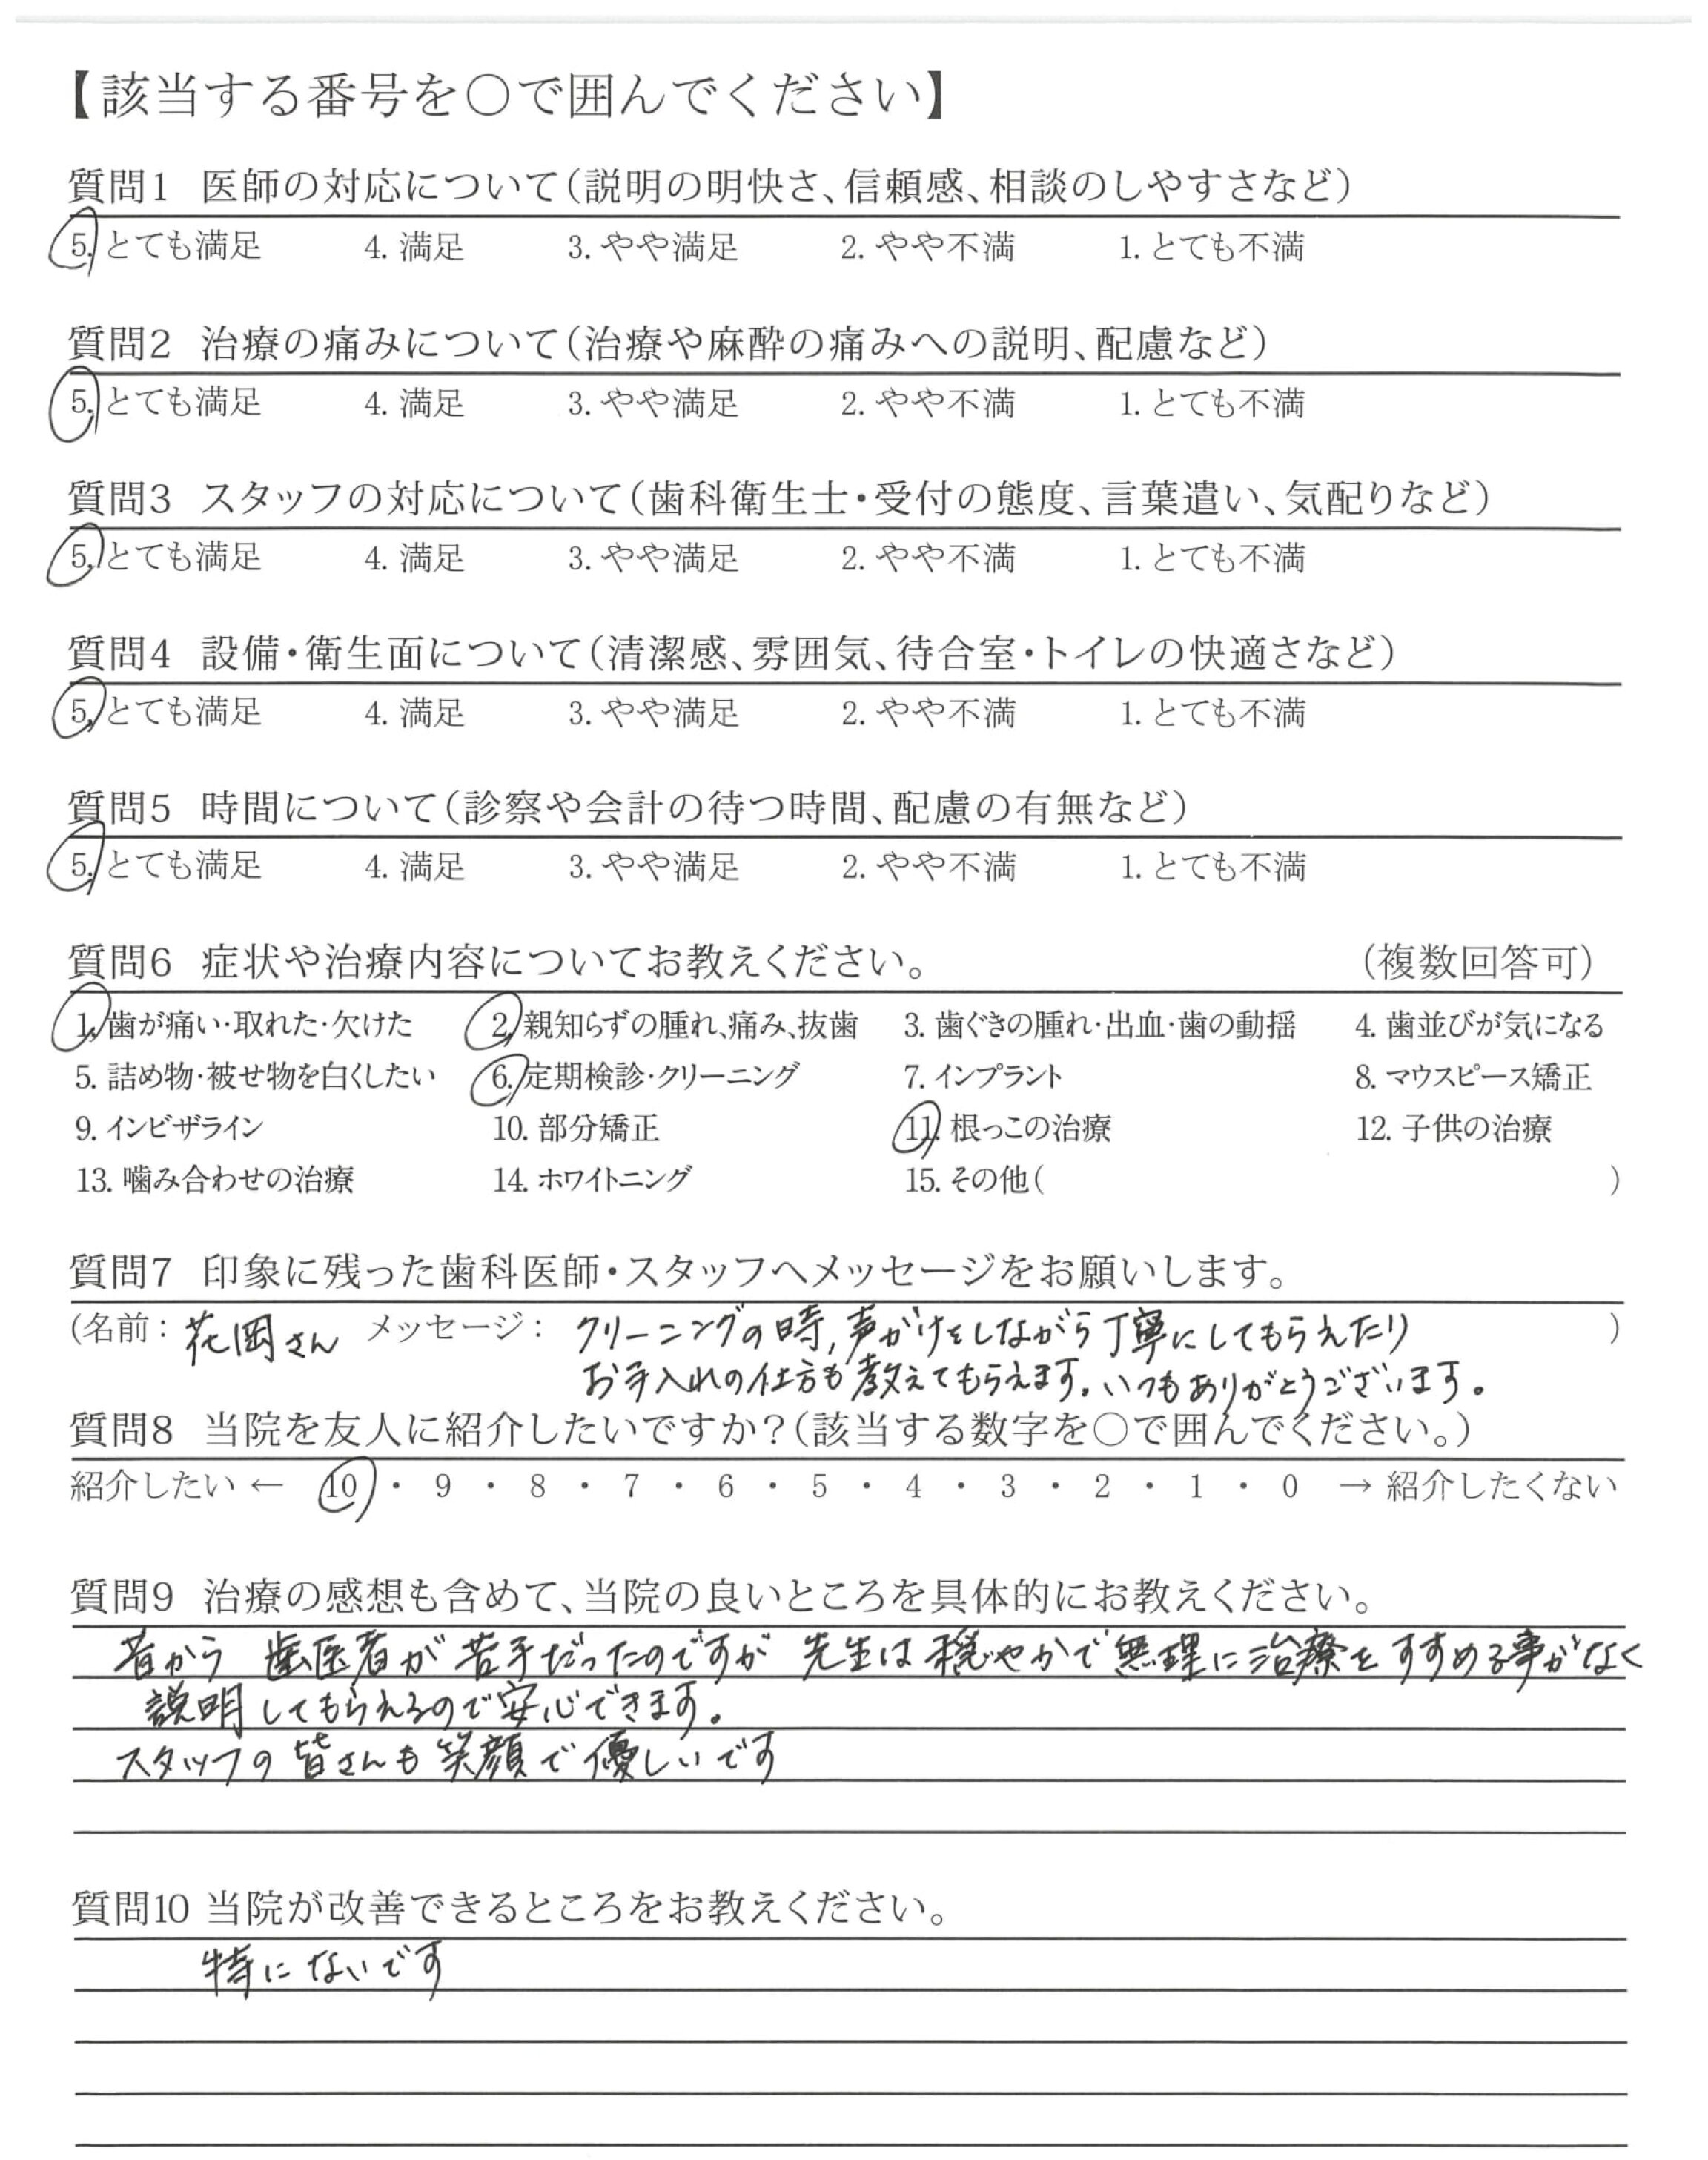 【該当する番号を○で囲んでください】
質問1 医師の対応について（説明の明快さ、信頼感、相談のしやすさなど）
5. とても満足 4. 満足 3. やや満足 2. やや不満 1. とても不満
質問2 治療の痛みについて（治療や麻酔の痛みへの説明、配慮など）
5. とても満足 4. 満足 3. やや満足 2. やや不満 1. とても不満
質問3 スタッフの対応について（歯科衛生士・受付の態度、言葉遣い、気配りなど）
5. とても満足 4. 満足 3. やや満足 2. やや不満 1. とても不満
質問4 設備・衛生面について（清潔感、雰囲気、待合室・トイレの快適さなど）
5. とても満足 4. 満足 3. やや満足 2. やや不満 1. とても不満
質問5 時間について（診察や会計の待つ時間、配慮の有無など）
5. とても満足 4. 満足 3. やや満足 2. やや不満 1. とても不満
質問6 症状や治療内容についてお教えください。 （複数回答可）
1. 歯が痛い・取れた・欠けた 2. 親知らずの腫れ、痛み、抜歯 3. 歯ぐきの腫れ・出血・歯の動揺 4. 歯並びが気になる
5. 詰め物・被せ物を白くしたい 6. 定期検診・クリーニング 7. インプラント 8. マウスピース矯正
9. インビザライン 10. 部分矯正 11. 根っこの治療 12. 子供の治療
13. 噛み合わせの治療 14. ホワイトニング 15. その他（ ）
質問7 印象に残った歯科医師・スタッフへメッセージをお願いします。
（名前： 花岡さん メッセージ： クリーニングの時,声かけをしながら丁寧にしてもらえたり ）
お手入れの仕方も教えてもらえます。いつもありがとうございます。
質問8 当院を友人に紹介したいですか？（該当する数字を○で囲んでください。）
紹介したい ← 10 ・ 9 ・ 8 ・ 7 ・ 6 ・ 5 ・ 4 ・ 3 ・ 2 ・ 1 ・ 0 → 紹介したくない
質問9 治療の感想も含めて、当院の良いところを具体的にお教えください。
昔から 歯医者が苦手だったのですが 先生は穏やかで無理に治療をすすめる事がなく
説明してもらえるので安心できます。
スタッフの皆さんも笑顔で優しいです
質問10 当院が改善できるところをお教えください。
特にないです